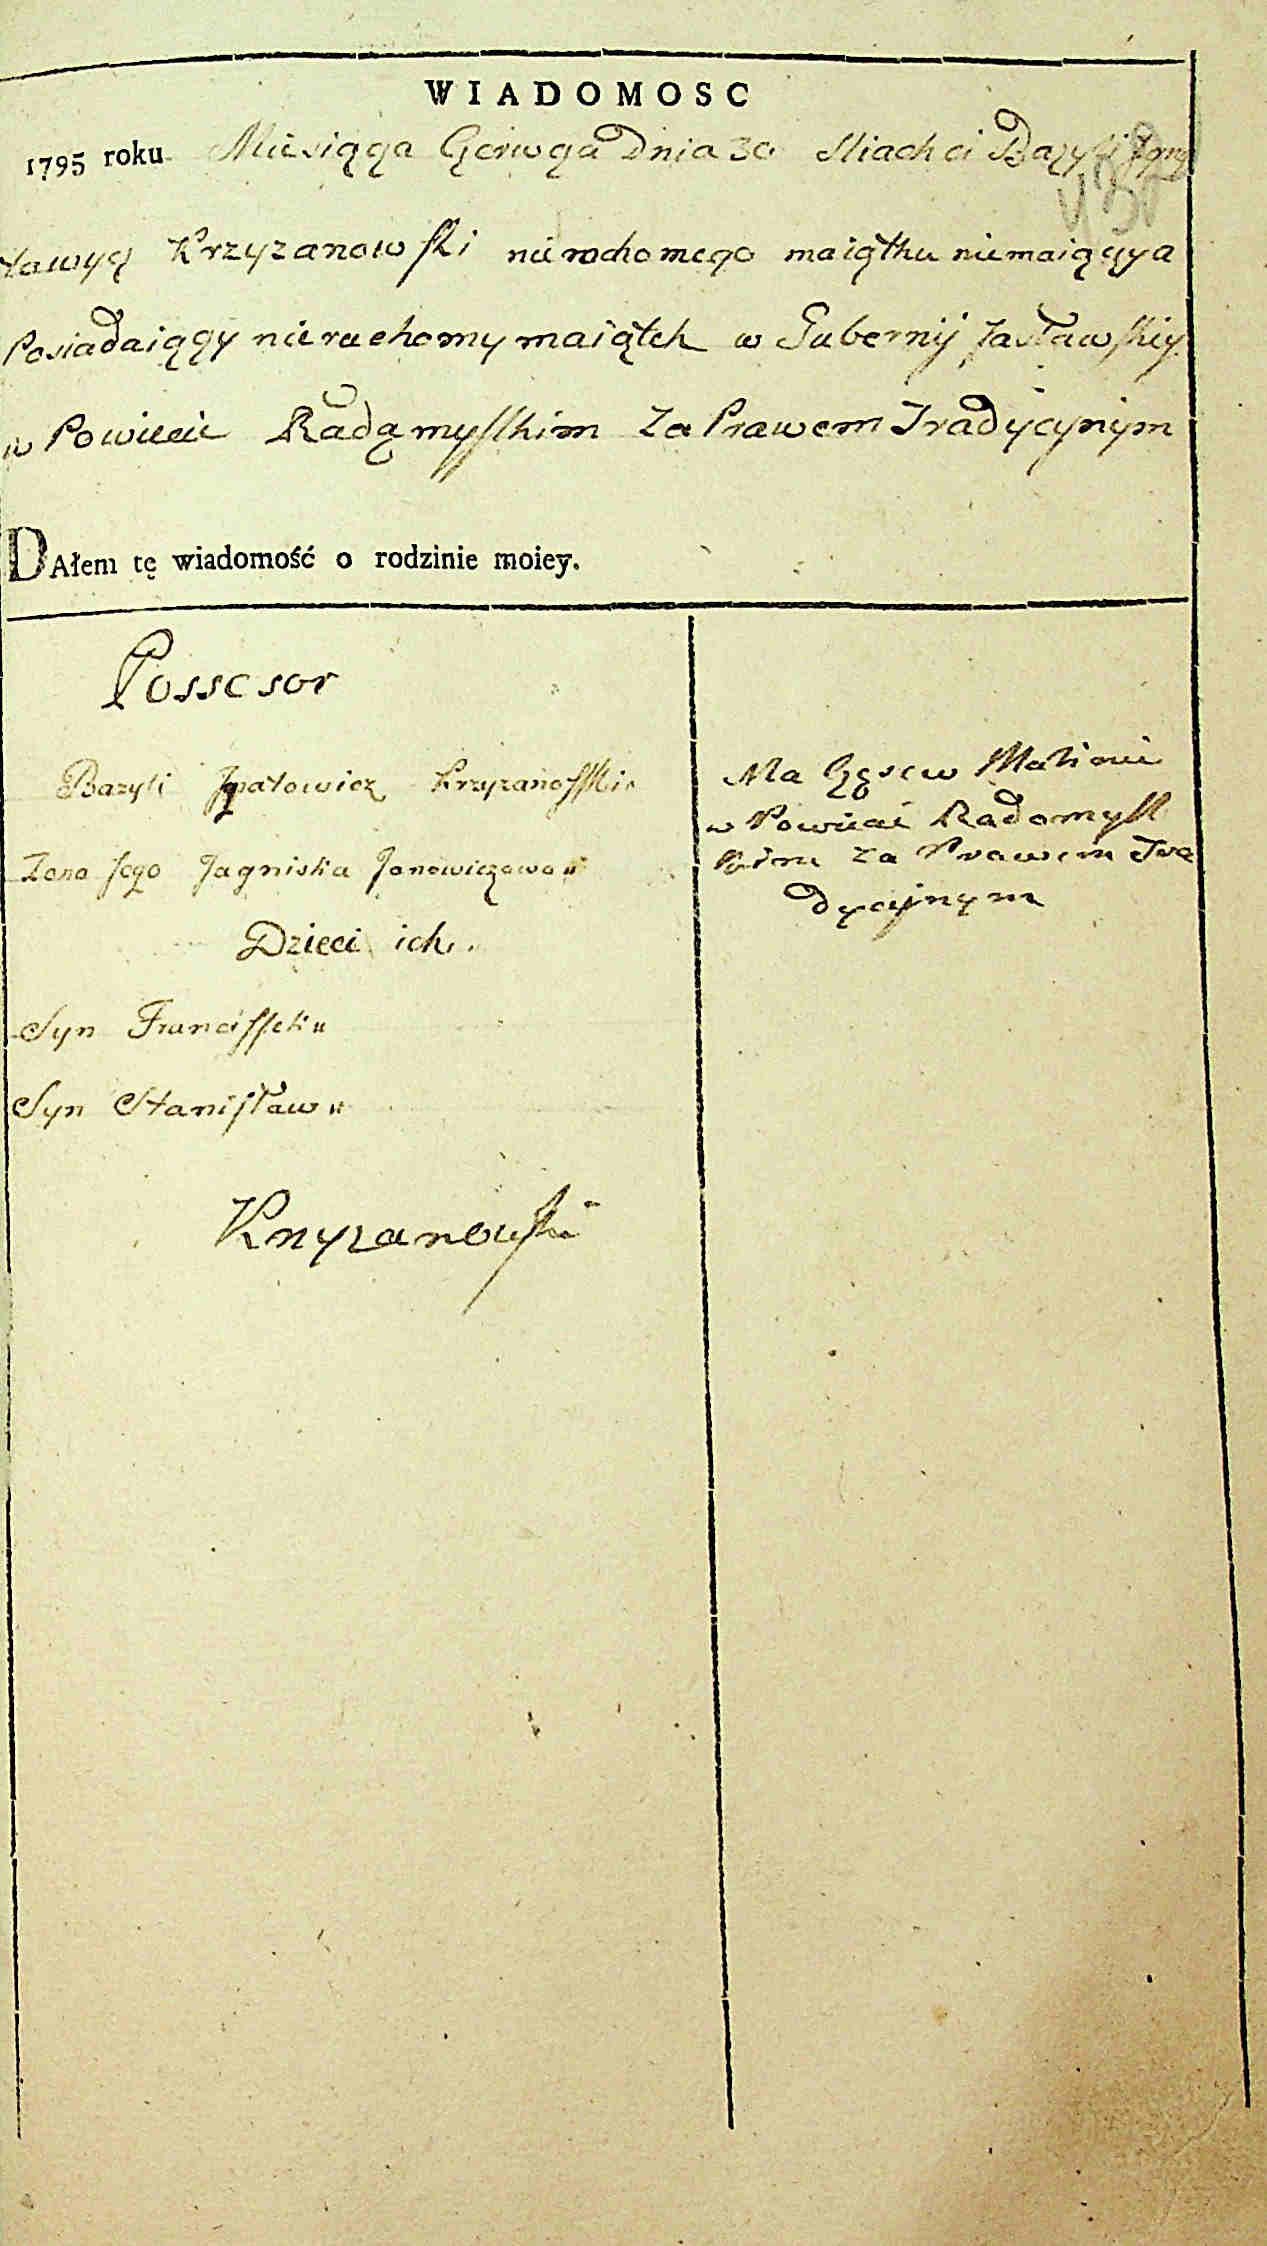 WIADOMOSC
1795 roku Miesiąca Czerwca Dnia 30 Sliachci Bazyli
Krzyzanowski nierochomego maiątku niemaiący a
Posiadaiący nieruchomy maiątek w Gubernij Jasławskiy
w Powiecie Radąmyskim za Prawem Tradycynym
DAłem tę wiadomość o rodzinie moiey.
Possesor
Bazyli Ipatowicz Krzyzanosski
Zona Jego Jagniska Janowiczowa
Dzieci ich
Syn Francissek
Syn Stanisław
Krzyzanowski
Ma Częsew Malinie
w Powiecie Radomysl
kim za Prawem Tra
dycyjnym